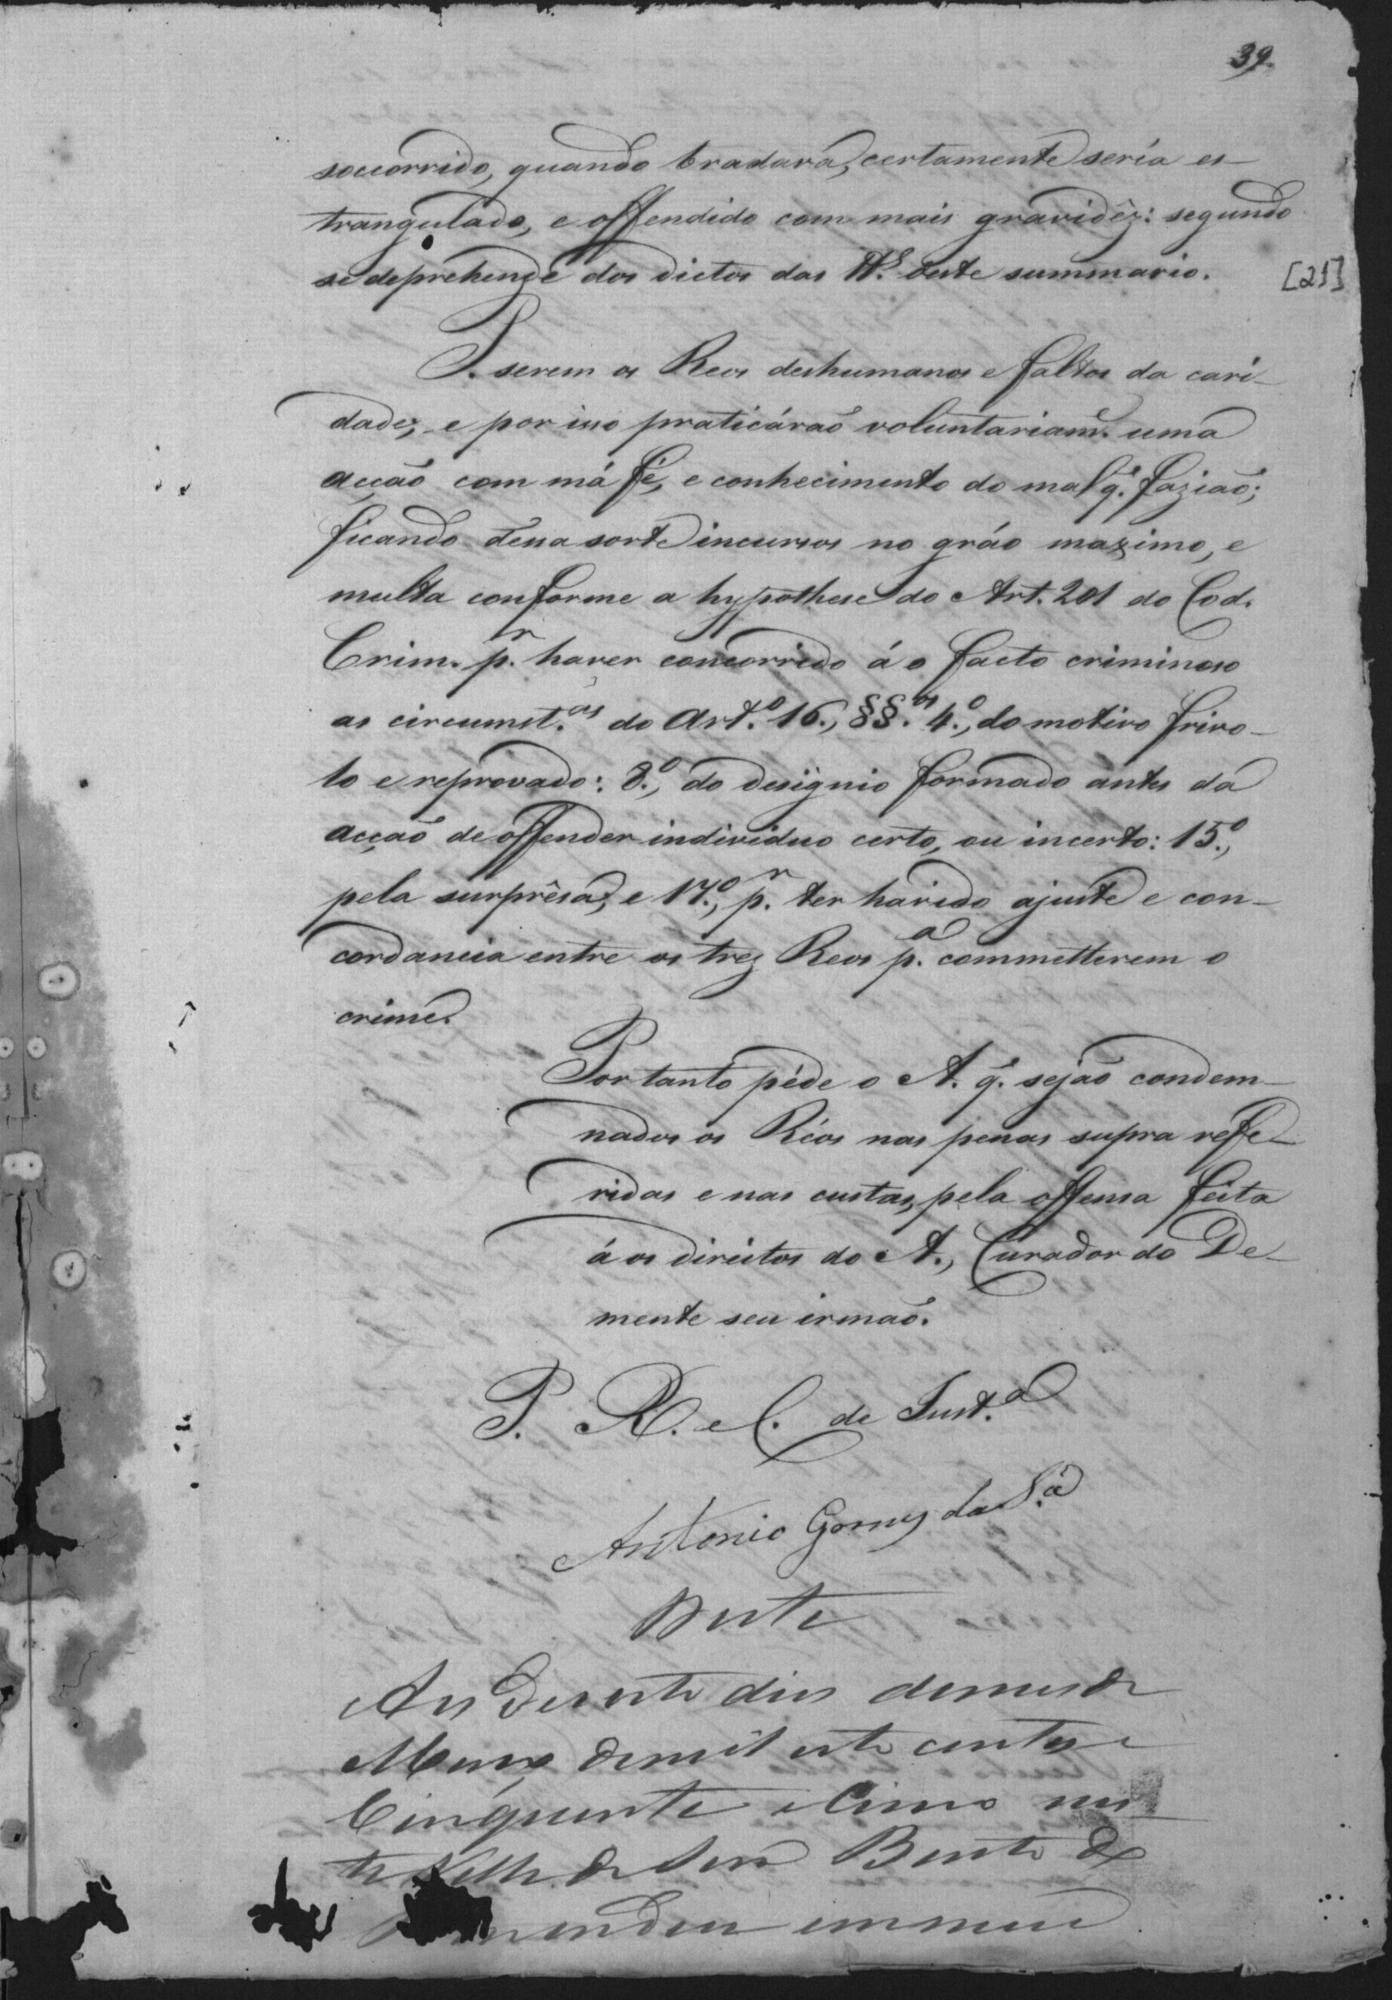 39.
soccorrido, quando bradára, certamente sería es-
trangulado, e offendido com mais gravidêz: segundo
se deprehende dos dictos das ttas. deste summario.
[21]
P. serem os Reos deshumanos e faltos da cari-
dade, e por isso praticárão voluntariamᵉ. uma
acção com má fé, e conhecimento do mal q̃. fazião;
ficando dessa sorte incursos no gráo maximo, e
multa conforme a hypothese do Art. 201 do Cod.
Crim. pʳ. haver concorrido á o facto criminoso
as circumst.ᵃˢ do Art.º 16., §§.ᵒˢ 4.º, do motivo frivo-
lo e reprovado: 8.º, do designio formado antes da
acção de offender individuo certo, ou incerto: 15.º,
pela surprêsa, e 17.º, pʳ. ter havido ajuste e con-
cordancia entre os trez Reos pᵃ. commetterem o
crime.
Portanto péde o A. q̃. sejão condem-
nados os Réos nas penas supra refe-
ridas e nas custas, pela offensa feita
á os direitos do A., Curador do De-
mente seu irmão.
P. R. e C. de Just.ᵃ
Antonio Gomes da S.ᵃ
Aos dezoito dias do mes de
Março de mil oito centos e
Cinquenta e Cinco nes-
ta Villa de Sam Bento de
em meu